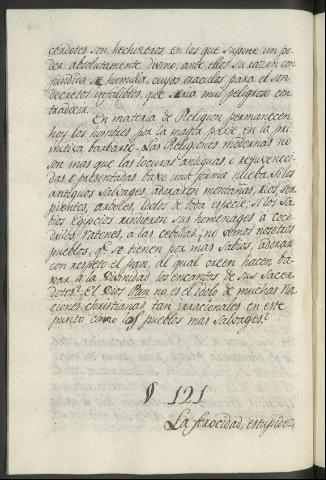 cerdotes son hechiceros en los que supone un po-
der absolutamente divino; ante ellos su razon con-
fundida se humilla, cuyos oraculos para el son
decretos infalibles, que seria mui peligroso con-
tradecir.
En materia de Religion permanecen
hoy los hombres por la mayor parte en la pri-
mitiva barbarie. Las Religiones modernas no
son mas que las locuras antiguas o rejuveneci-
das o presentadas baxo una forma nueba. Si los
antiguos Salvages, adoraron montañas, Rios, ser-
pientes, arboles, Idolos de toda especie; si los Sa-
bios Egipcios rindieron sus homenages à coco-
drilos, ratones, a las cebollas; no vemos nosotros
pueblos, q.e se tienen por mas Sabios, adorar
con respeto el pan, al qual creen hacen ba-
xar à la Divinidad los encantos de sus Sacer-
dotes? El Dios Pan no es el idolo de muchas Na-
ciones christianas tan irracionales en este
punto como los pueblos mas Salvages?
§ 121
La ferocidad, estupidez,